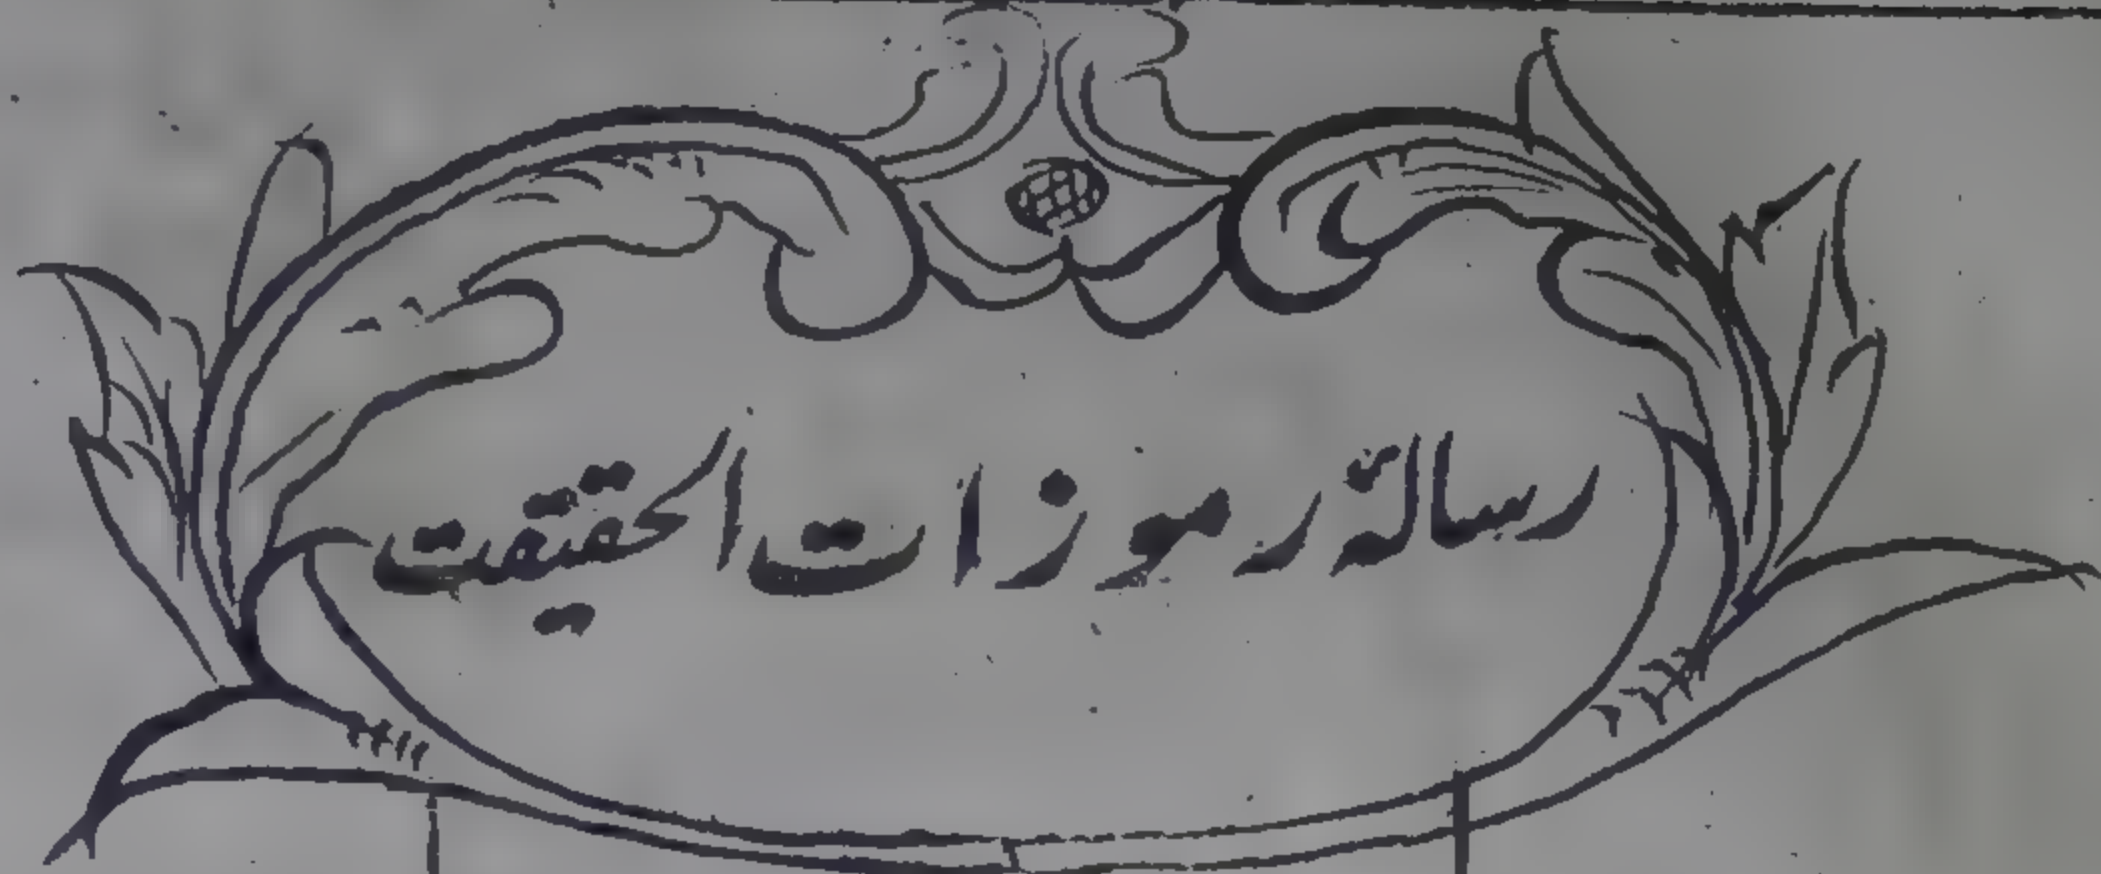 رسالۂ رموزات الحقیقت